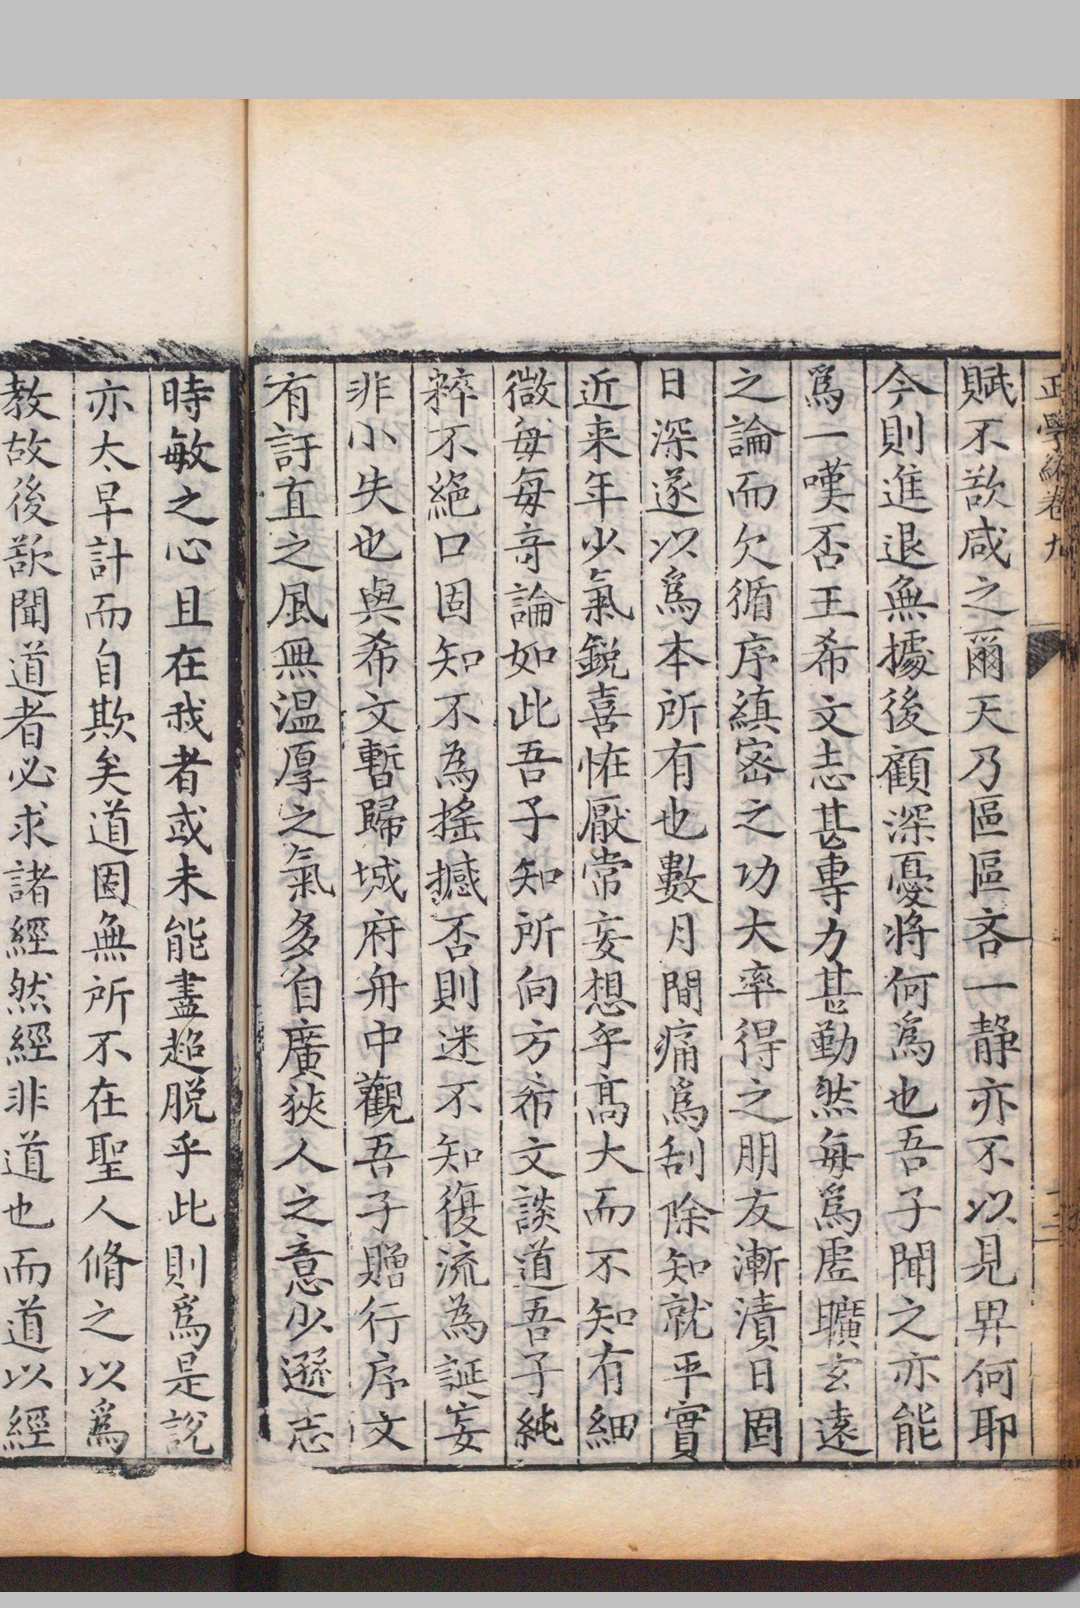 正學編卷九
二
賦不歆咸之爾天乃區區吝一靜亦不以見畀何耶
今則進退無據後顧深憂將何爲也吾子聞之亦能
爲一嘆否王希文志甚專力甚勤然每爲虛曠玄遠
之論而欠循序縝密之功大率得之朋友漸漬日固
日深遂以爲本所有也數月間痛爲刮除知就平實
近来年少氣銳喜恠厭常妄想乎高大而不知有細
微每每竒論如此吾子知所向方希文談道吾子純
粹不絕口固知不為搖撼否則迷不知復流為誕妄
非小失也與希文暫歸城府舟中觀吾子贈行序文
有訐直之風無温厚之氣多自廣狹人之意少遜志
時敏之心且在我者或未能盡超脫乎此則爲是說
亦太早計而自欺矣道固無所不在聖人脩之以爲
教故後歆聞道者必求諸經然經非道也而道以經